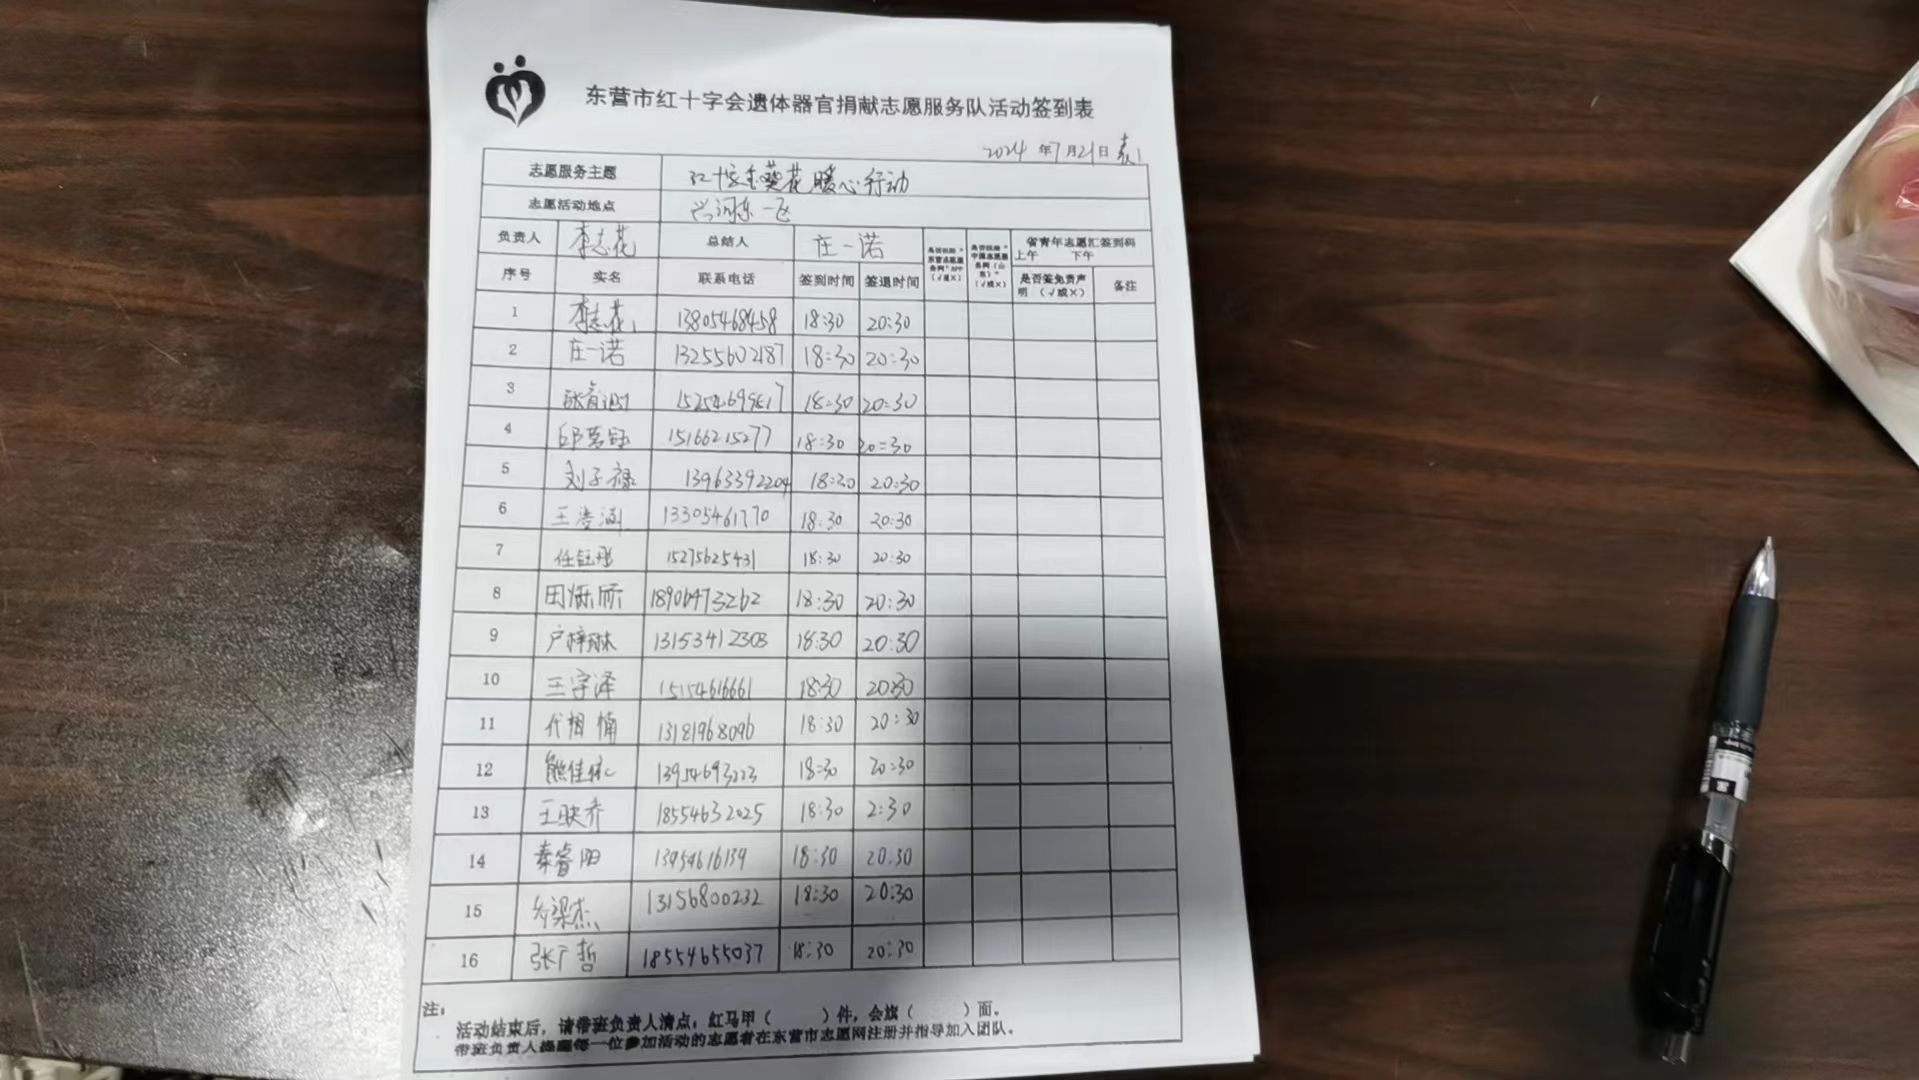 东营市红十字会遗体器官捐献志愿服务队活动签到表
2024 年7月21日 表1
志愿服务主题 红十字会葵花暖心行动
志愿活动地点
负责人 李志花 总结人 庄一诺 省青年志愿汇签到码
上午 下午
序号 实名 联系电话 签到时间 签退时间 是否签免责声明（√或×） 备注
1 李志花 13805468458 18:30 20:30
2 庄一诺 13255602187 18:30 20:30
3 18:30 20:30
4 15166215277 18:30 20:30
5 刘子禄 13963392204 18:30 20:30
6 13305461770 18:30 20:30
7 任钰彤 15275625431 18:30 20:30
8 18906473262 18:30 20:30
9 卢梓琳 13153412303 18:30 20:30
10 王宇泽 15154616661 18:30 20:30
11 13181968096 18:30 20:30
12 熊佳 13954693223 18:30 20:30
13 王映乔 18554632025 18:30 2:30
14 秦睿阳 13954616139 18:30 20:30
15 梁杰 13156800232 18:30 20:30
16 张广哲 18554655037 18:30 20:30
注：
活动结束后，请带班负责人清点：红马甲（ ）件，会旗（ ）面。
带班负责人提醒每一位参加活动的志愿者在东营市志愿网注册并指导加入团队。